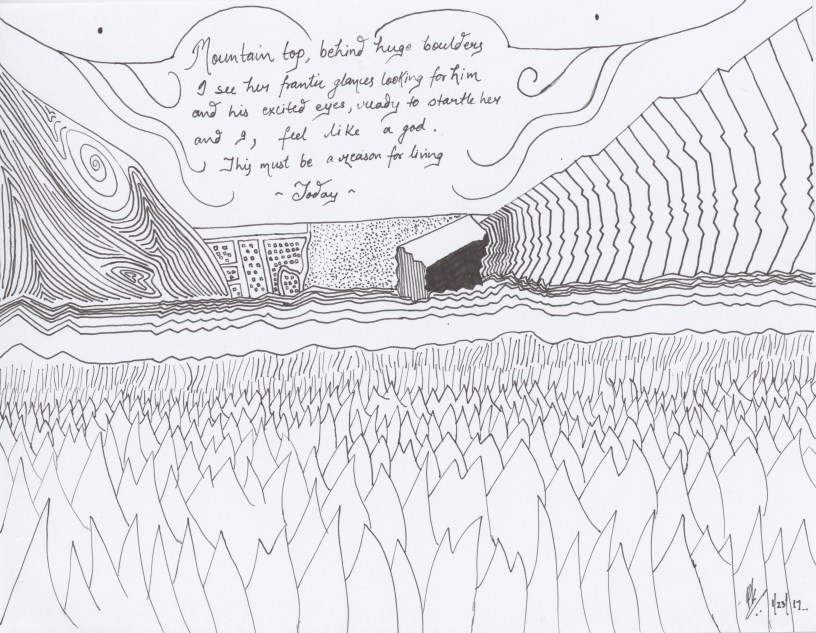 Mountain top, behind huge boulders
I see her frantic glances looking for him
and his excited eyes, ready to startle her
and I, feel like a god.
This must be a reason for living
~ Today ~
1/23/17..